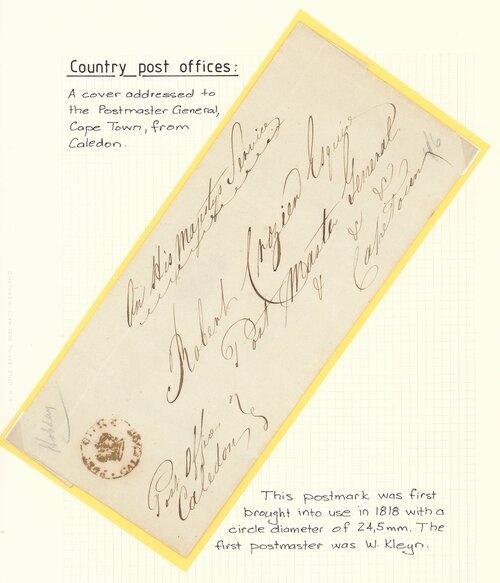 Country post offices:
A cover addressed to
the Postmaster General,
Cape Town, from
Caledon.
On His Majestys Service
Robert Crozier Esquire
Post Master General
& & &
Cape Town
Post Office
Caledon
This postmark was first
brought into use in 1818 with a
circle diameter of 24,5mm. The
first postmaster was W. Kleyn.